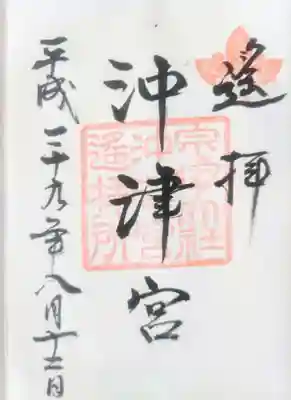 遙拝
沖津宮
平成二十九年八月十二日
宗像大社
沖津宮
遙拝所